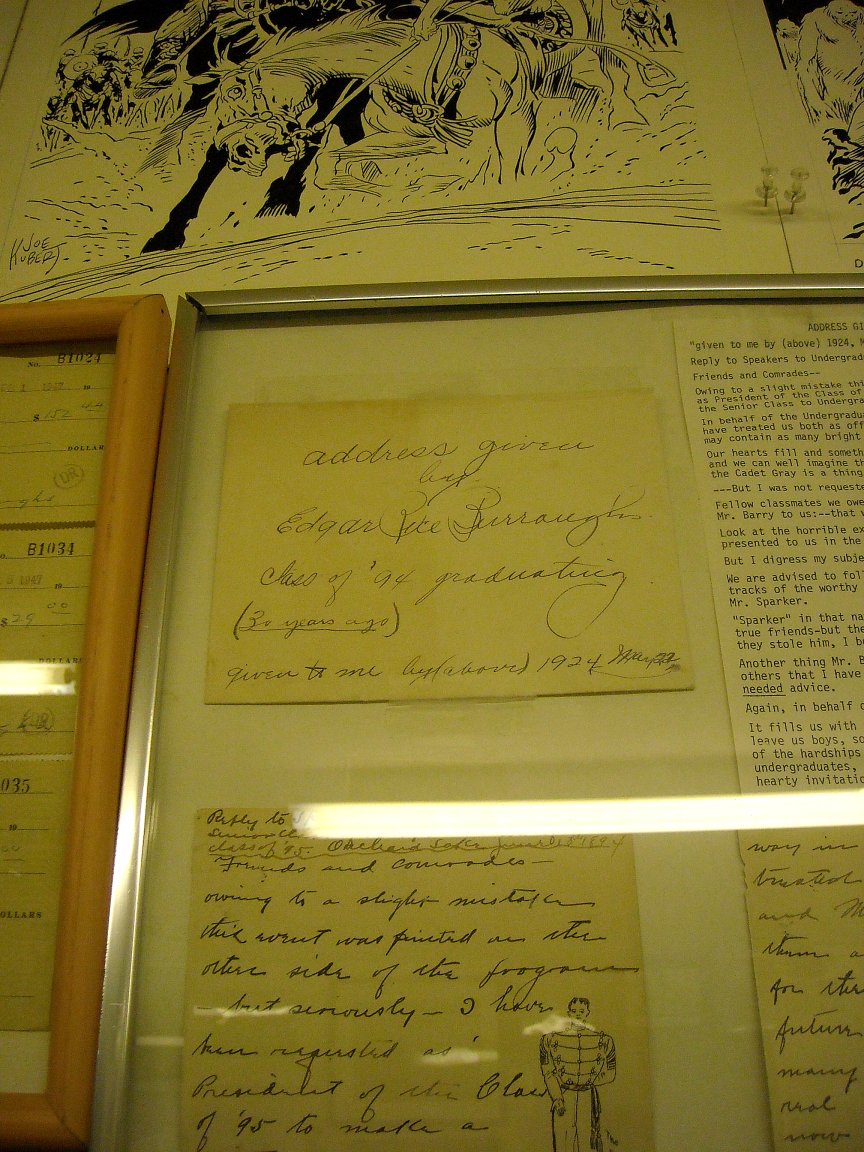 JOE
KUBERT
No. B1024
1947 19
$ 152 44
DOLLAR
B1034
1947 19
$ 29 00
DOLLARS
035
19
OLLARS
address given
by
Edgar Rice Burroughs
Class of '94 graduating
(30 years ago)
given to me by (above) 1924 May 22
Reply to
class of '95. Orchard Lake June 1894
Friends and comrades—
owing to a slight mistake
this event was printed on the
other side of the program
— but seriously — I have
been requested as
President of the Class
of '95 to make a
The
ADDRESS GI
"given to me by (above) 1924, M
Reply to Speakers to Undergrad
Friends and Comrades--
Owing to a slight mistake thi
as President of the Class of
the Senior Class to Undergra
In behalf of the Undergradu
have treated us both as off
may contain as many bright
Our hearts fill and someth
and we can well imagine th
the Cadet Gray is a thing
---But I was not requeste
Fellow classmates we owe
Mr. Barry to us:--that w
Look at the horrible ex
presented to us in the
But I digress my subje
We are advised to fol
tracks of the worthy
Mr. Sparker.
"Sparker" in that na
true friends-but the
they stole him, I b
Another thing Mr. B
others that I have
needed advice.
Again, in behalf o
It fills us with
leave us boys, so
of the hardships
undergraduates,
hearty invitatio
way in
trusted
and M
them a
for the
future
many
real
now
D